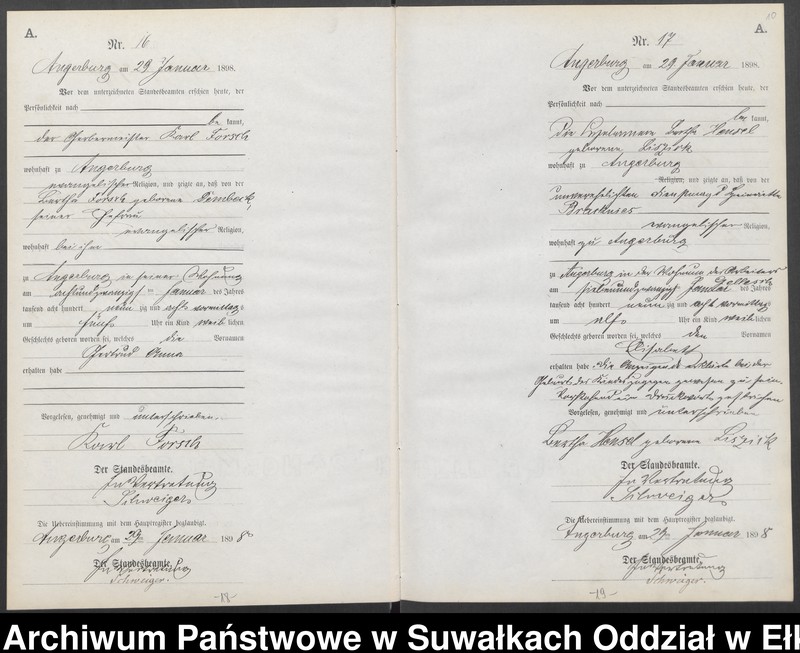 A.
Nr. 16
Angerburg am 29. Januar 1898.
Vor dem unterzeichneten Standesbeamten erschien heute, der
Persönlichkeit nach
be kannt,
der Gerbermeister Karl Forsch
wohnhaft zu Angerburg
evangelischer Religion, und zeigte an, daß von der
Bertha Forsch geborene Dembeck,
seiner Ehefrau
evangelischer Religion,
wohnhaft bei ihm
zu Angerburg in seiner Wohnung
am achtundzwanzigsten Januar des Jahres
tausend acht hundert neun zig und acht vormittags
um fünf Uhr ein Kind weib lichen
Geschlechts geboren worden sei, welches die Vornamen
Gertrud Anna
erhalten habe
Vorgelesen, genehmigt und unterschrieben.
Karl Forsch
Der Standesbeamte.
In Vertretung
Schweiger
Die Uebereinstimmung mit dem Hauptregister beglaubigt.
Angerburg am 29. Januar 1898
Der Standesbeamte.
In Vertretung
Schweiger.
-18-
10
A.
Nr. 17
Angerburg am 29. Januar 1898.
Vor dem unterzeichneten Standesbeamten erschien heute, der
Persönlichkeit nach
be kannt,
die Bertha Hensel
geborene Liszick
wohnhaft zu Angerburg
Religion, und zeigte an, daß von der
unverehelichten Dienstmagd Henriette
evangelischer Religion,
wohnhaft zu Angerburg
zu Angerburg in der Wohnung des Arbeiters
am siebenundzwanzigsten Januar des Jahres
tausend acht hundert neun zig und acht vormittags
um elf Uhr ein Kind weib lichen
Geschlechts geboren worden sei, welches den Vornamen
Elisabeth
erhalten habe. Die Anzeigende erklärte bei der
Geburt des Kindes zugegen gewesen zu sein.
Vorstehend ein Druckwort gestrichen
Vorgelesen, genehmigt und unterschrieben
Bertha Hensel geborene Liszick
Der Standesbeamte.
In Vertretung
Schweiger
Die Uebereinstimmung mit dem Hauptregister beglaubigt.
Angerburg am 29. Januar 1898
Der Standesbeamte.
In Vertretung
Schweiger.
-19-
Archiwum Państwowe w Suwałkach Oddział w Ełk